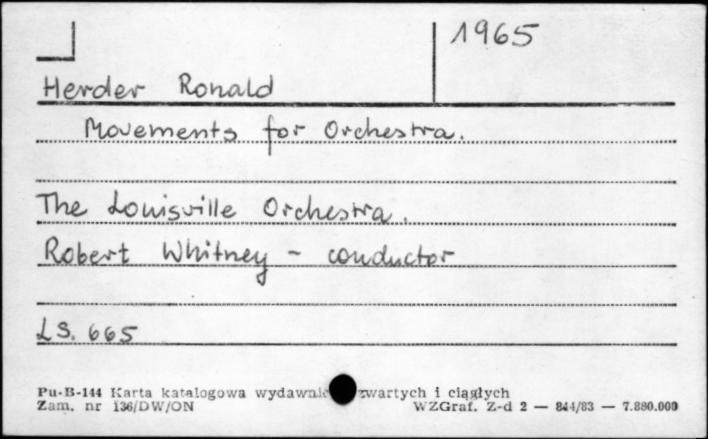 1965
Herder Ronald
Movements for Orchestra.
The Louisville Orchestra.
Robert Whitney - conductor
LS. 665
Pu-B-144 Karta katalogowa zwartych i ciągłych
Zam. nr 136/DW/ON WZGraf. Z-d 2 — 844/83 — 7.880.000